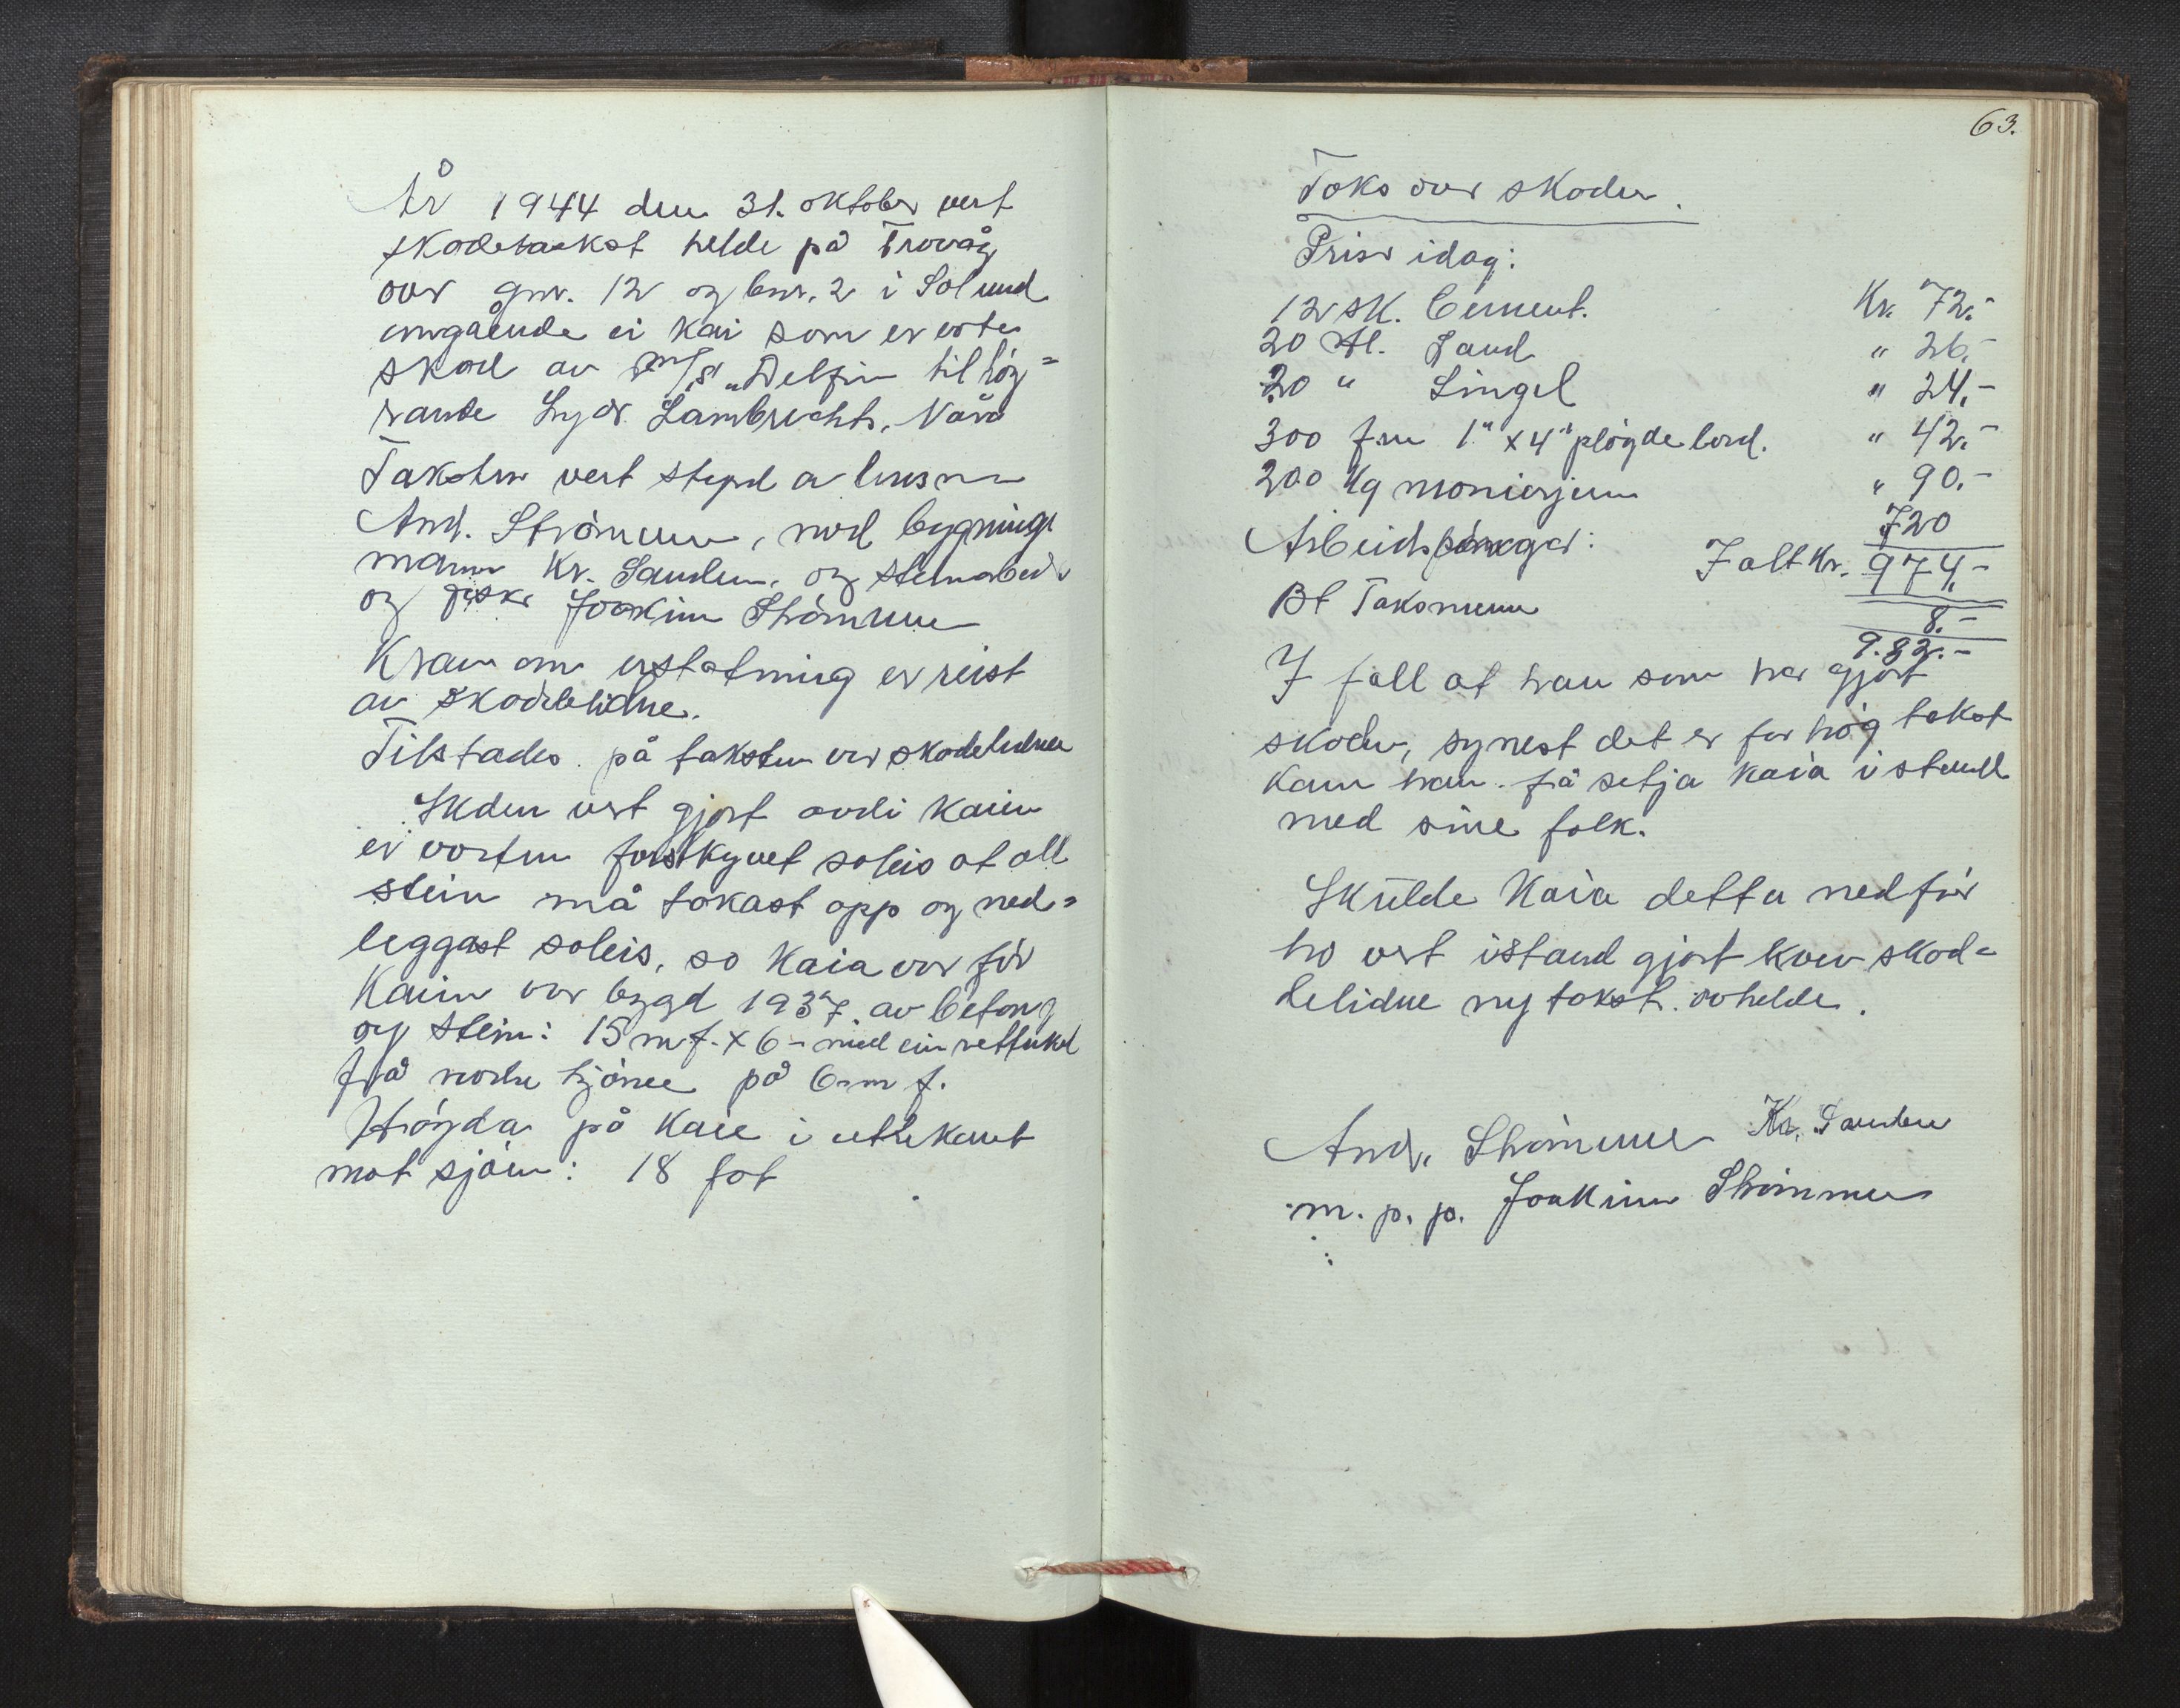 År 1944 den 31. oktober vert
skadetakst helde på Trovåg
over gnr. 12 og bnr. 2 i Solund
omgåande ei kai som er vorte
skad av m/s „Delfin tilhøy=
rande Lyder Lambrechts, Nåra
Taksten vert styrd av lensm
And. Strömmen, med bygnings
mann Kr. Sanden, og steinarbeider
og fisker Joakim Strömmen
Kravn om erstatning er reist
av skadelidne.
Tilstades på taksten var skadelidne
Skaden vert gjort avdi kaien
er vorten forskyvet soleis at all
stein må takast opp og ned=
leggast soleis, so kaia var før
Kaien var bygd 1937 av betong
og stein: 15 m f. x 6 - med ein rettvinkel
frå nordre hjörne på 6 m f.
Högda på kaie i ytrekant
mot sjöen: 18 fot
63.
Taks over skaden.
Priser idag:
12 sk. Cement. Kr. 72.-
20 Hl. Sand " 26.-
20 " Singel " 24.-
300 fm 1" x 4" plögde bord. " 42.-
200 Kg monierjern " 90.-
Arbeidspengar: 720
I alt Kr. 974.-
Bt Taksmenn 8.-
9.82.-
I fall at han som har gjort
skaden, synest det er for høg takst
kann han få setja kaia i stand
med sine folk.
Skulde kaia detta ned før
ho vert istand gjort krev skad=
delidne ny takst avhelde.
And. Strömmen Kr. Sanden
m. p. p. Joakim Strömmen